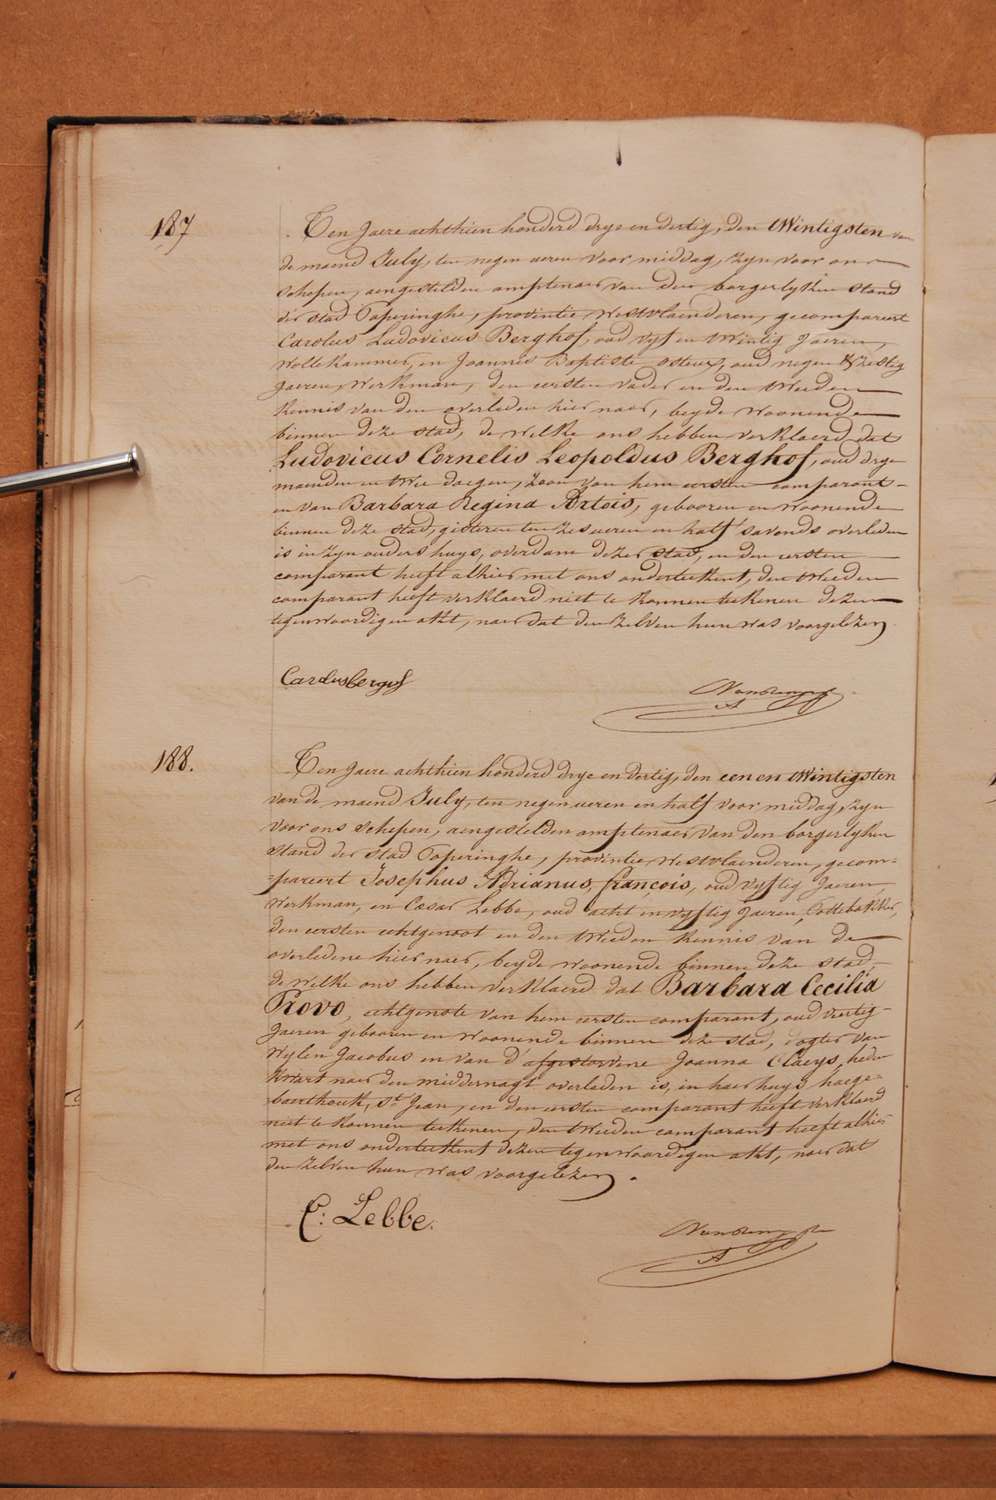 187
Ten Jaere achthien honderd drye en dertig, den twintigsten van
de maend July, ten negen ueren voor middag, zyn voor ons
schepen, aengestelden amptenaer van den borgerlyken stand
der stad Poperinghe, provintie Westvlaenderen, gecompareert
Carolus Ludovicus Berghof, oud vyf en twintig Jaeren,
Wollekammer, en Joannes Baptiste osteux, oud negen &zestig
Jaeren, Werkman, den eersten vader en den tweeden
kennis van den overleden hier naer, beyde woonende
binnen deze stad, de welke ons hebben verklaerd dat
Ludovicus Cornelis Leopoldus Berghof, oud drye
maenden en twee daegen, zoon van hem eersten comparant
en van Barbara Regina Artois, gebooren en woonende
binnen deze stad, gisteren ten zes ueren en half savonds overleden
is in zyn ouders huys, overdam dezer stad, en den eersten
comparant heeft alhier met ons onderteekent, den tweeden
comparant heeft verklaerd niet te konnen teekenen dezen
tegenwoordigen akt, naer dat den zelven hun was voorgelezen
Carolus berghof
188.
Ten Jaere achthien honderd drye en dertig, den een en twintigsten
van de maend July, ten negen ueren en half voor middag, zyn
voor ons schepen, aengestelden amptenaer van den borgerlyken
stand der stad Poperinghe, provintie Westvlaenderen, gecom=
=pareert Josephus Adrianus françois, oud vyftig Jaeren,
Werkman, en Cesar Lebbe, oud acht en vyftig Jaeren, Pottebakker,
den eersten echtgenoot en den tweeden kennis van de
overledene hier naer, beyde woonende binnen deze stad,
de welke ons hebben verklaerd dat Barbara Cecilia
Provo, echtgenote van hem eersten comparant, oud veertig
Jaeren gebooren en woonende binnen deze stad, dogter van
Wylen Jacobus en van d'afgestorvene Joanna Claeys, heden
kwart naer den middernagt overleden is, in haer huys haege=
=baerthoek, St Jean, en den eersten comparant heeft verklaerd
niet te konnen teekenen, den tweeden comparant heeft alhier
met ons onderteekent dezen tegenwoordigen akt, naer dat
den zelven hun was voorgelezen.
C: Lebbe.